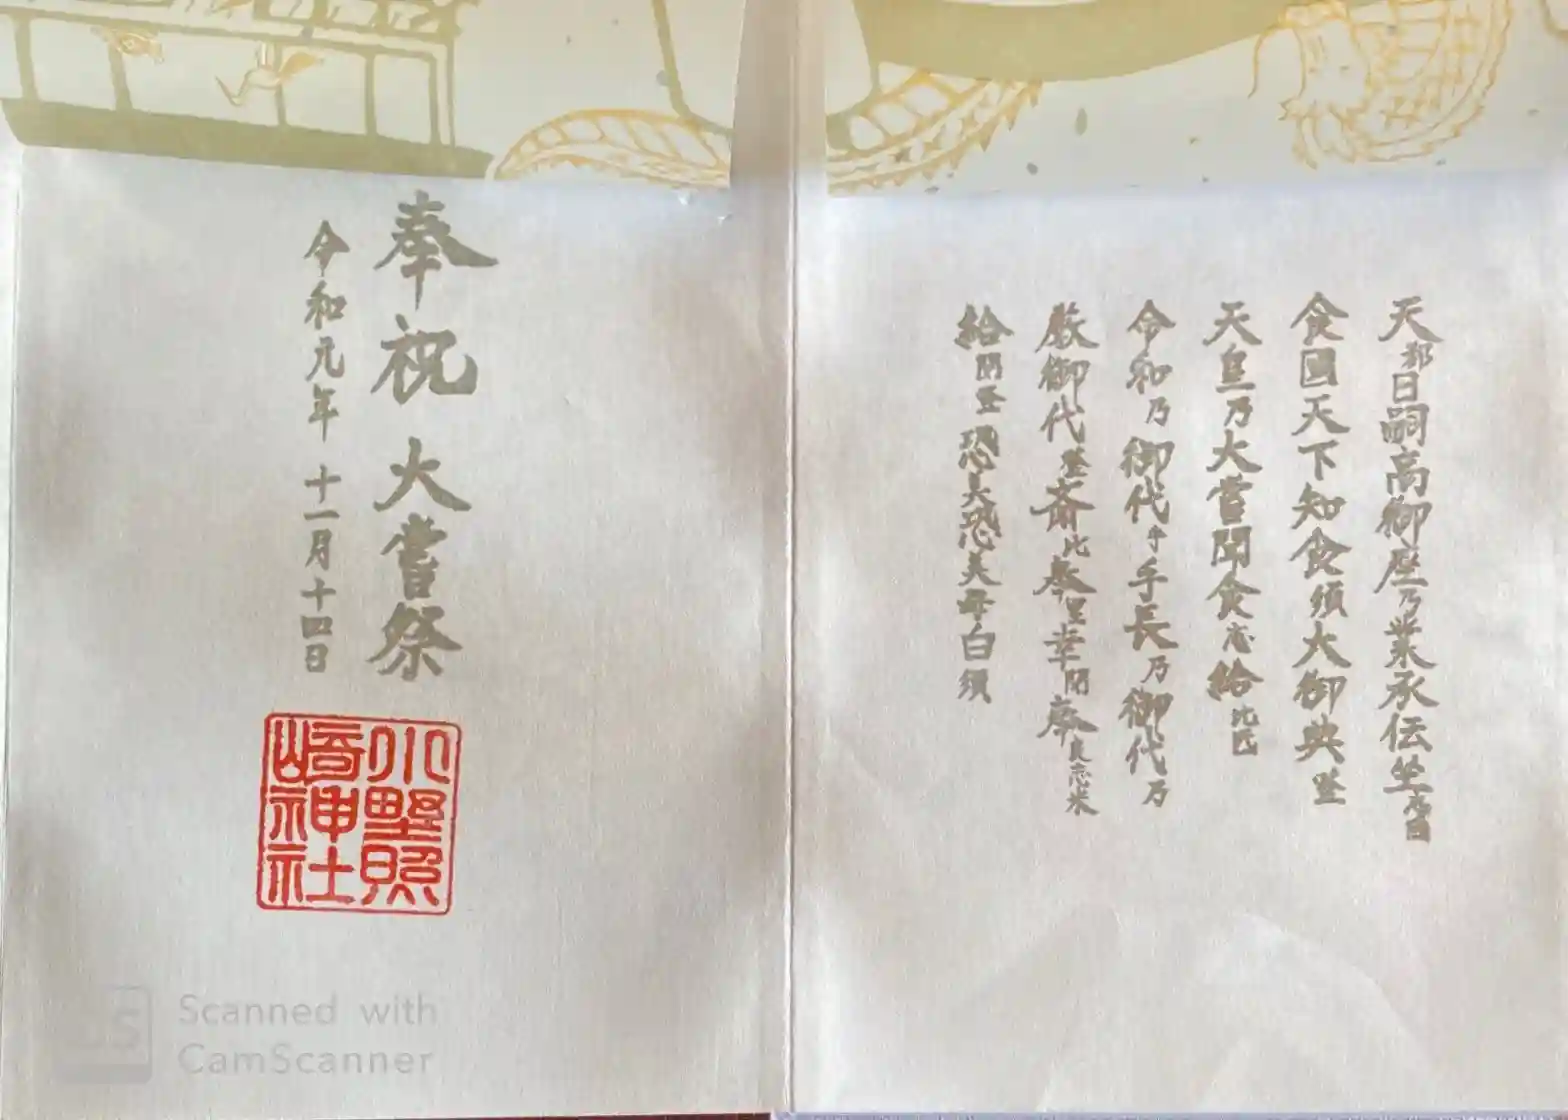 天都日嗣高御座乃業承伝坐
食國天下知食須大御典登
天皇乃大嘗聞食志給比氐
令和乃御代乎手長乃御代乃
厳御代登斎比奉里幸閇奉良志米
給閇登恐美恐美母白須
奉祝 大嘗祭
令和元年 十一月十四日
小野照
崎神社
Scanned with
CamScanner